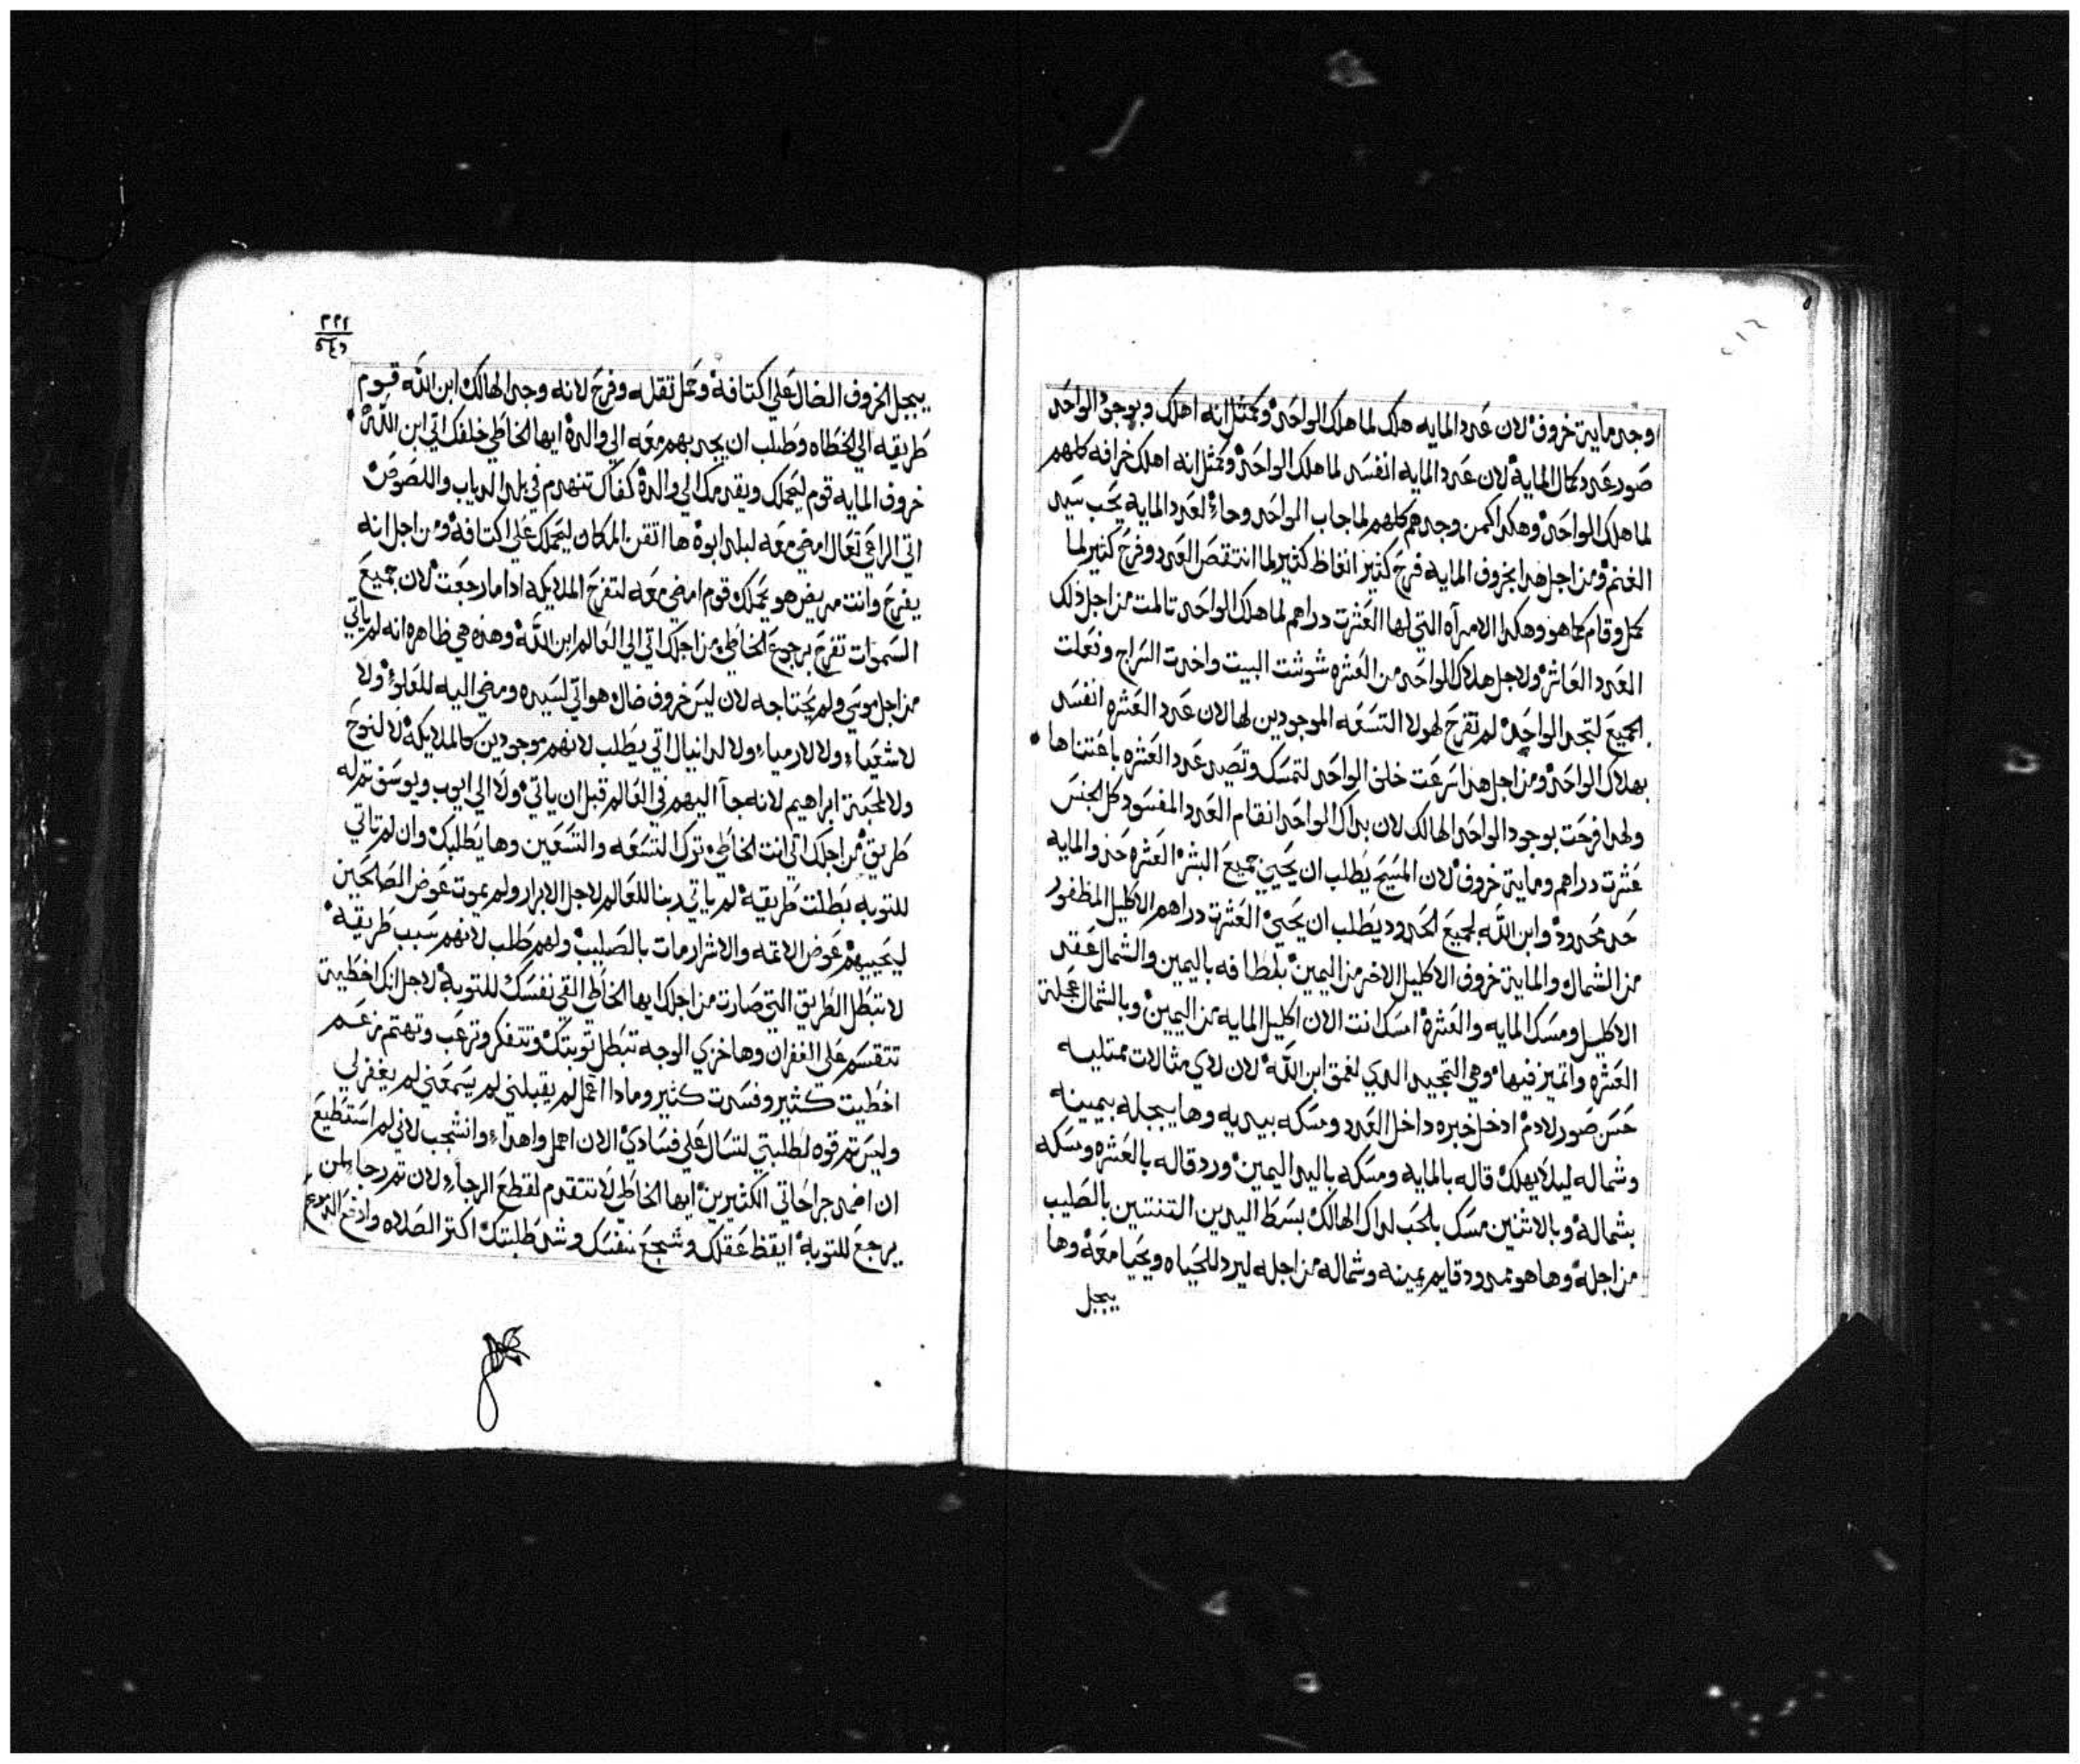 وجد ماية خروف لان عدد المايه هلك لما هلك الواحد وكمثل انه اهلك وبوجود الواحد
صور عدد كمال الماية لان عدد المايه انفسد لما هلك الواحد وكمثل انه اهلك خرافه كلهم
لما هلك الواحد وهكدا كمن وجدهم كلهم لما جاب الواحد وجاء لعدد المايه يحب سيد
الغنم ومن اجل هدا بخروف المايه فرح كثير انغاظ كثير لما انتقص العدد وفرح كثير لما
كمل وقام كما هو وهكدا الامرآه التي لها العشرت دراهم لما هلك الواحد تالمت من اجل ذلك
العدد العاشر ولاجل هلاك الواحد من العشره شوشت البيت واخدت السراج ونعلت
الجميع لتجد الواحد لم تفرح لهولا التسعه الموجودين لها لان عدد العشره انفسد
بهلاك الواحد ومن اجل هدا اسرعت خلف الواحد لتمسك وتصير عدد العشره باعتناها
ولهدا فرحت بوجود الواحد الهالك لان بداك الواحد انقام العدد المفسود كل الجنس
عشرت دراهم وماية خروف لان المسيح يطلب ان يحيي جميع البشر العشره حد والمايه
حد محدود وابن الله لجميع الحدود يطلب ان يحيي العشرت دراهم الاكليل المظفور
من الشمال والماية خروف الاكليل الاخر من اليمين بلطافه باليمين والشمال عقد
الاكليل ومسك المايه والعشرة امسك انت الان اكليل المايه من اليمين وبالشمال عجلة
العشره واتميز فيها وهي التجديد الدي لعمق ابن الله لان لادي مثالات ممتليه
حسن صور لادم ادخل خبره داخل العدد ومسكه بيديه وها يبجله بيمينه
وشماله ليلا يهلك قاله بالمايه ومسكه باليد اليمين ورد قاله بالعشره ومسكه
بشماله وبالاثنين مسك بالحب لداك الهالك بسط اليدين التنتين بالصليب
من اجله وها هو ممدود قايم يمينه وشماله من اجله ليرد للحياه ويحيا معه وها
يبجل
٣٢٢
يبجل الخروف الضال علي اكتافه وحمل تقله وفرح لانه وجد الهالك ابن الله قوم
طريقه الي الخطاه وطلب ان يجد بهم معه الي والده ايها الخاطي خلفك اتي ابن الله
خروف المايه قوم ليحملك ويقدمك الي والدة كفاك تنهدم في بلد الدياب واللصوص
اتي الراعي تعال امضي معه لبلد ابوة ها اتقن المكان ليحملك علي اكتافه ومن اجل انه
يفرح وانت مريض هو يحملك قوم امضي معه لتفرح الملايكه ادا ما رجعت لان جميع
السموات تفرح برجوع الخاطي من اجلك اتي الي العالم ابن الله وهذه هي ظاهره انه لم ياتي
من اجل موسي ولم يحتاجه لان ليس خروف ضال هو اتي لسيده ومضي اليه للعلو ولا
لاشعياء ولا لارمياء ولا لدانيال اتي يطلب لانهم موجودين كالملايكه لا لنوح
ولا لمحبة ابراهيم لانه جآ اليهم في العالم قبل ان ياتي ولا الي ايوب ويوسف تم له
طريق من اجلك اتي انت الخاطي ترك التسعه والتسعين وها يطلبك وان لم تاتي
للتوبه بطلت طريقة لم ياتي ربنا للعالم لاجل الابرار ولم يموت عوض الصالحين
ليحييهم عوض الاتمه والاشرار مات بالصليب ولهم طلب لانهم سبب طريقه
لا تبطل الطريق التي صارت من اجلك ايها الخاطي القي نفسك للتوبة لاجل انك اخطية
تتقسم علي الغفران وها خزي الوجه تبطل توبتك وتتفكر وترعب وتهتم بزعم
اخطيت كثير وفسدت كثير ومادا اعمل لم يقبلني لم يسمعني لم يغفر لي
وليس تم قوه لطلبتي لتسال علي فسادي الان احمل واهدا وانشجب لاني لم استطيع
ان اضمد جراحاتي الكثيرين ايها الخاطي لا تتقدم لقطع الرجاء لان تم رجاء لمن
يرجع للتوبة ايقظ عقلك وشجع نفسك وشد طلبتك اكثر الصلاه وادفع الدموع